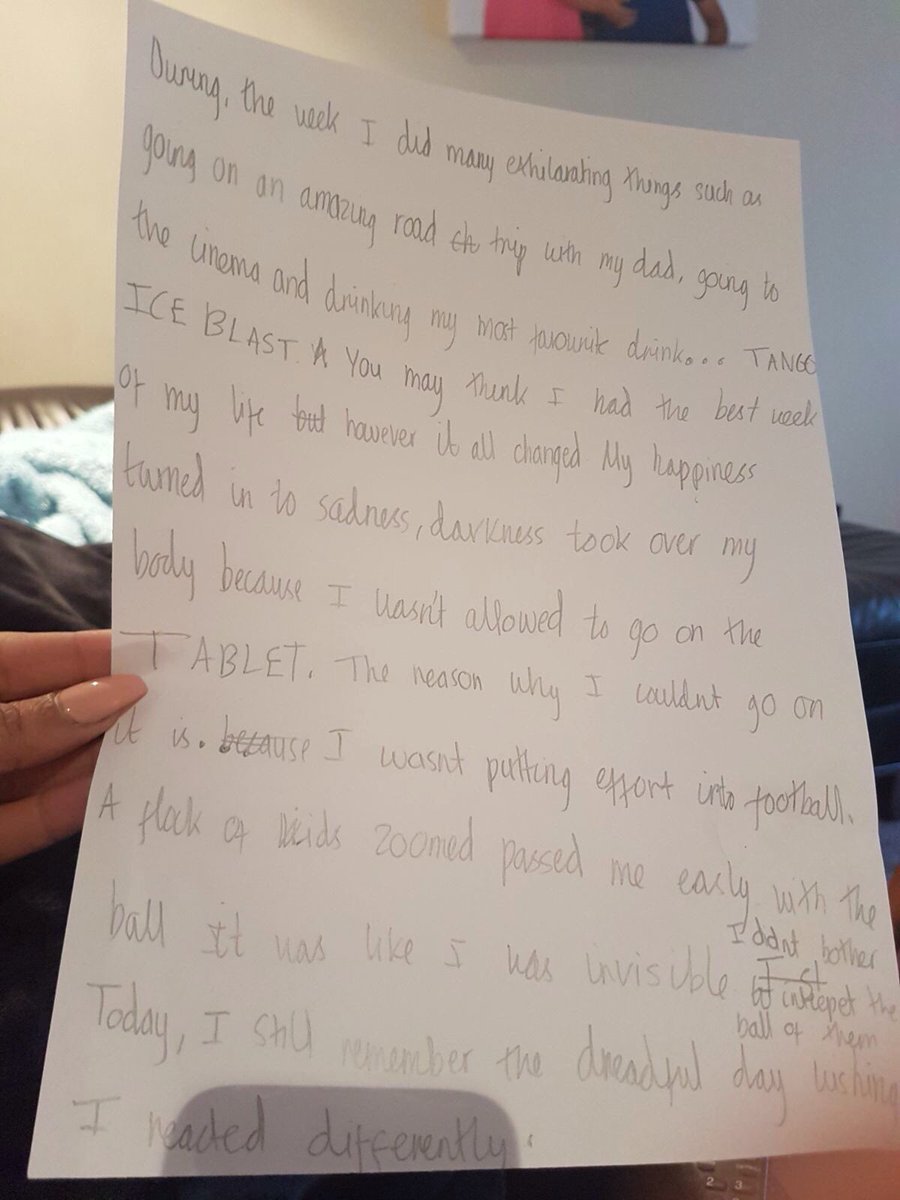 During, the week I did many exhilarating things such as
going on an amazing road th trip with my dad, going to
the cinema and drinking my most favourite drink... TANGO
ICE BLAST. A You may think I had the best week
of my life but however it all changed My happiness
turned in to sadness, darkness took over my
body because I wasn't allowed to go on the
TABLET. The reason why I couldnt go on
it is. because I wasnt putting effort into football.
A flock of kids zoomed passed me easily with the
ball It was like I was invisible I didnt bother
to intepet the
ball of them
Today, I still remember the dreadful day wishing
I reacted differently.
2 3